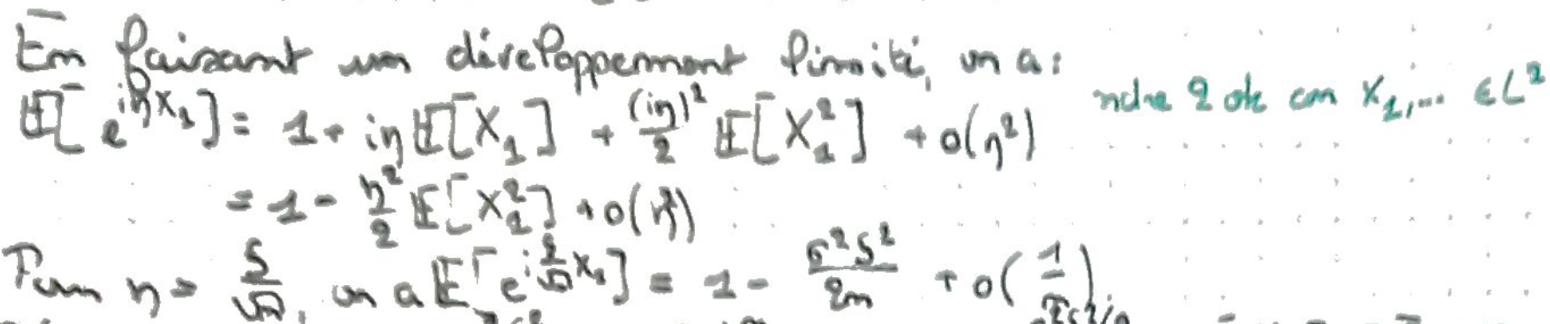 En faisant un développement limité, on a :
𝔼[e^{iηX_1}] = 1 + iη𝔼[X_1] + (iη)²/2 𝔼[X_1²] + o(η²) ordre 2 ok car X_1,... ∈ L²
= 1 - η²/2 𝔼[X_1²] + o(η²)
Pour η = ξ/√n, on a 𝔼[e^{i ξ/√n X_1}] = 1 - σ²ξ²/2n + o(1/n)